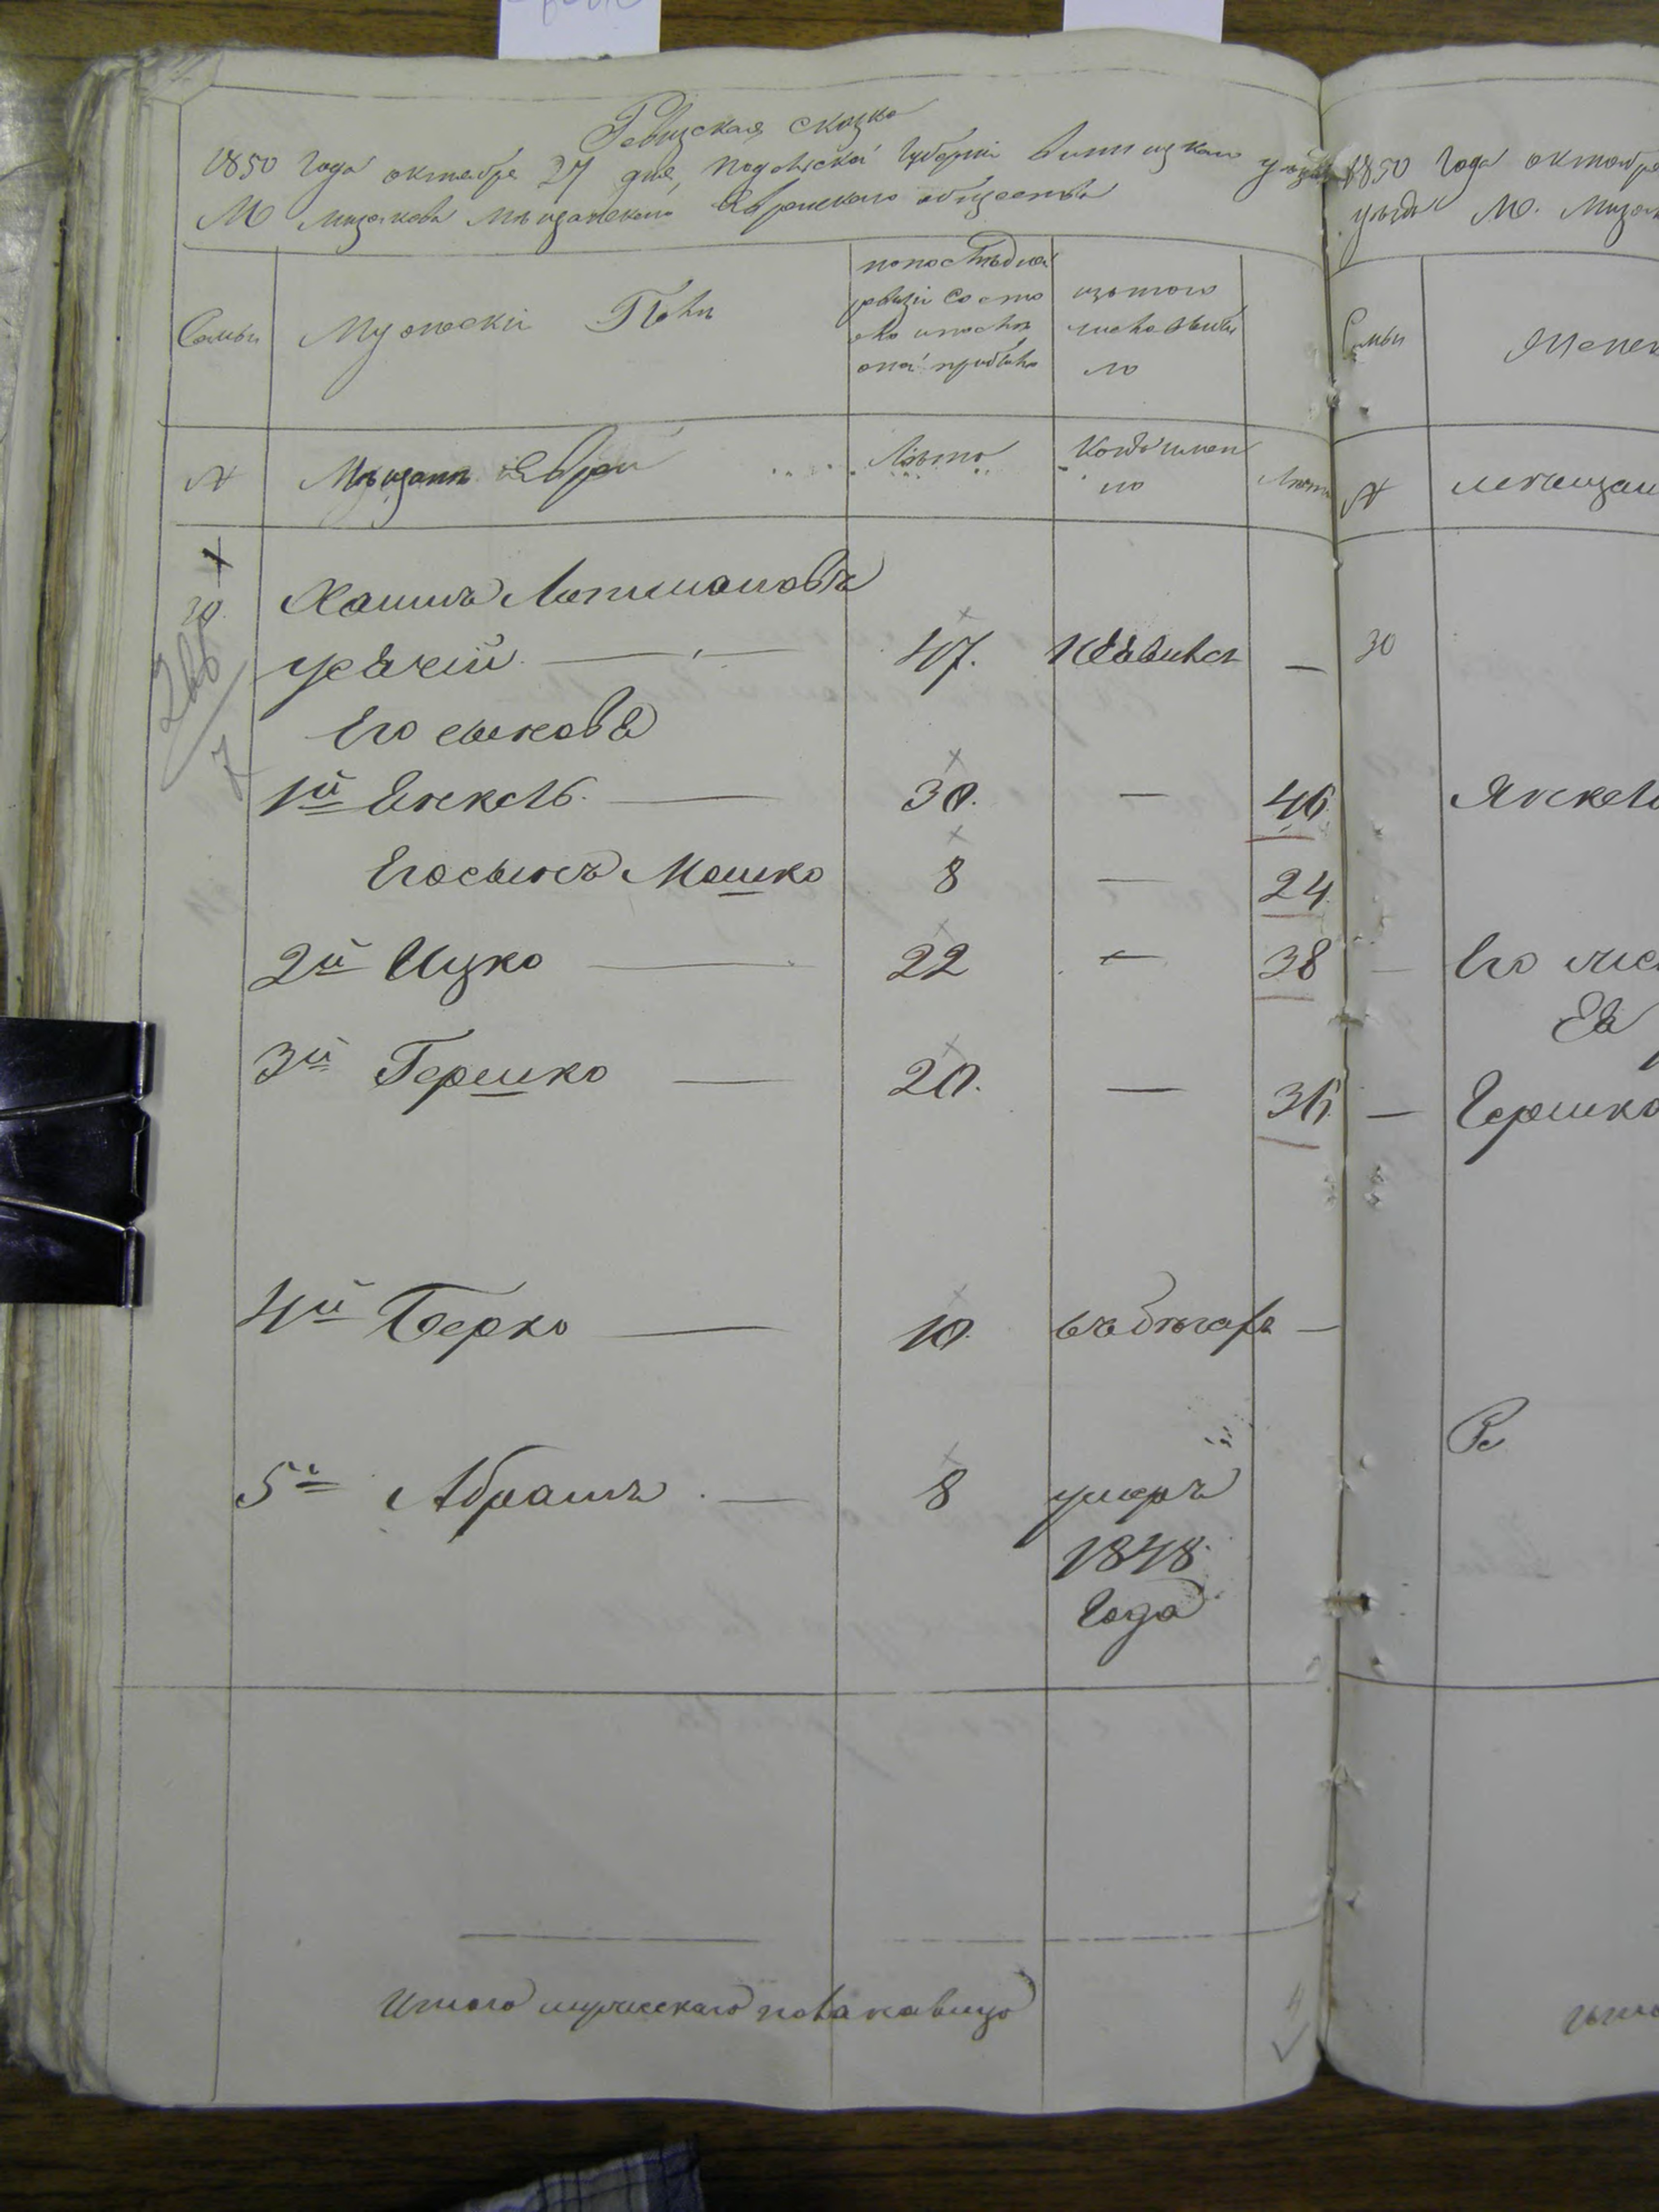 Ревизская сказка
1850 Года октября 27 дня, подольской Губернии винницкаго уезда
М мизякова мѣщанскаго Еврейскаго общества
Семьи
Мужескій Полъ
по последней
ревизіи состо
яло и после
оной прибыло
изъ того
числа выбы
ло
№
Мѣщане Евреи
Лѣта
Когда имен
но
Лѣта
30
Хаимъ
47.
—
Его сыновья
1й Енкель — 30. — 46
Его сынъ Мошко 8 — 24
2й Ицко — 22 — 38
3й Гершко — 20. — 36
4й Берко — 10. въ бѣгахъ —
5й Абрамъ — 8 умеръ
1848
Года
Итого мужескаго пола налицо 4
1850 Года октября
уезда М.
Семьи
№
30
Янкель
Его
— Гершко